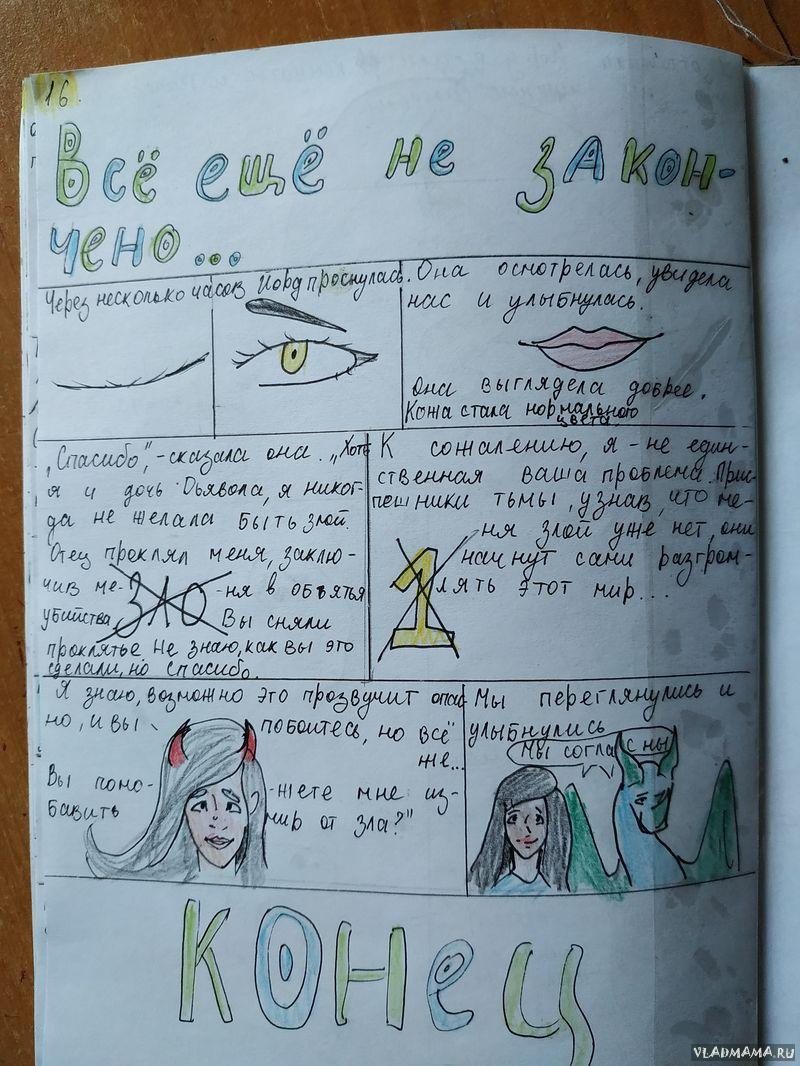 16.
Всё ещё не закон-
чено...
Через несколько часов Йорд проснулась.
Она осмотрелась, увидела
нас и улыбнулась.
Она выглядела добрее.
Кожа стала нормального
цвета.
„Спасибо", - сказала она. „Хоть
я и дочь Дьявола, я никог-
да не желала быть злой.
Отец проклял меня, заклю-
чив ме- ня в объятья
убийства. Вы сняли
ЗЛО
проклятье. Не знаю, как вы это
сделали, но спасибо.
К сожалению, я - не един-
ственная ваша проблема. Прис-
пешники тьмы, узнав, что ме-
ня злой уже нет, они
начнут сами разгром-
лять этот мир...
1
Я знаю, возможно это прозвучит опас
но, и вы побоитесь, но всё
же...
Вы помо- жете мне из-
бавить мир от зла?"
Мы переглянулись и
улыбнулись
Мы согласны
Конец
VLADMAMA.RU